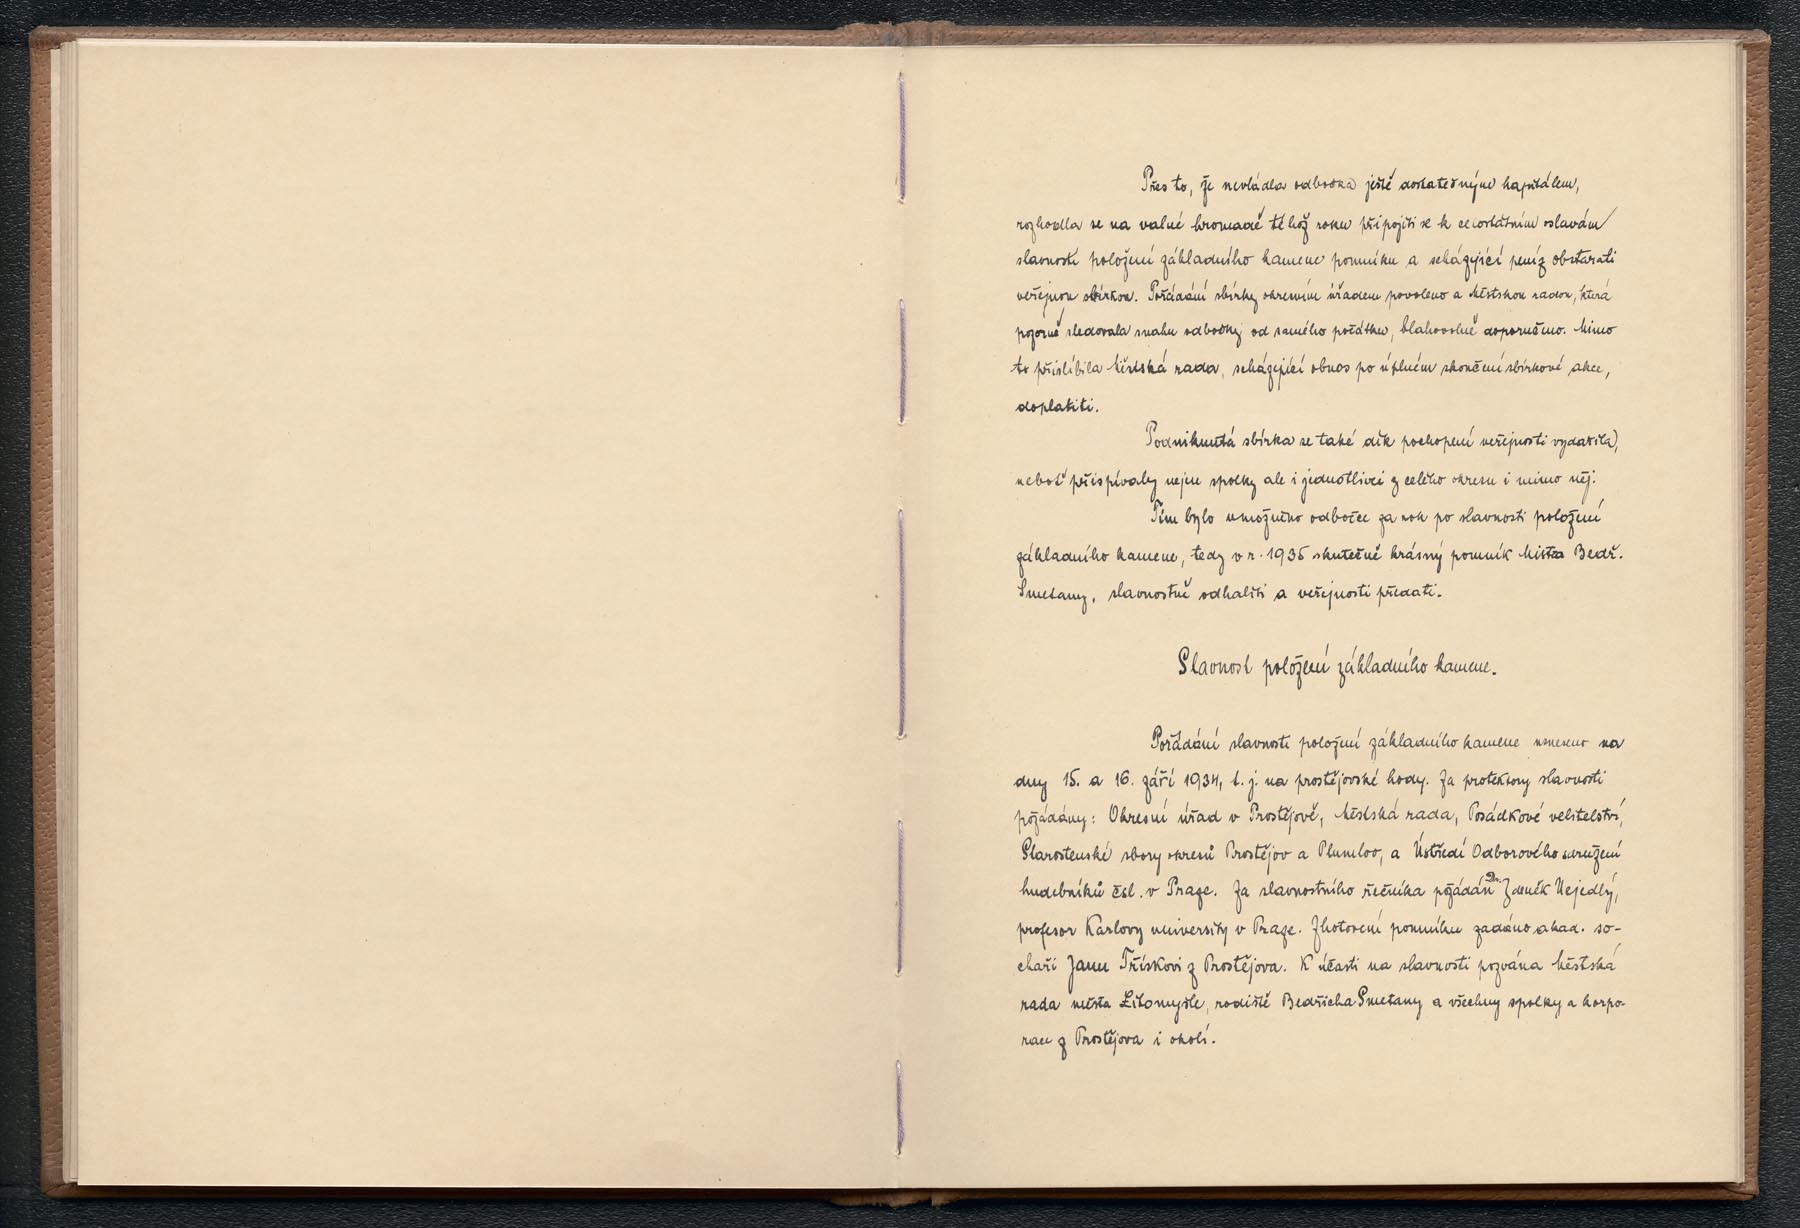 Přes to, že nevládla odbočka ještě dostatečným kapitálem,
rozhodla se na valné hromadě téhož roku připojiti se k celostátním oslavám
slavností položení základního kamene pomníku a scházející peníz obstarati
veřejnou sbírkou. Pořádání sbírky okresním úřadem povoleno a Městskou radou, která
pozorně sledovala snahu odbočky od samého počátku, blahovolně doporučeno. Mimo
to přislíbila Městská rada, scházející obnos po úplném skončení sbírkové akce,
doplatiti.
Podniknutá sbírka se také dík pochopení veřejnosti vydařila,
neboť přispívaly nejen spolky ale i jednotlivci z celého okresu i mimo něj.
Tím bylo umožněno odbočce za rok po slavnosti položení
základního kamene, tedy v r. 1935 skutečně krásný pomník Mistra Bedř.
Smetany, slavnostně odhaliti a veřejnosti předati.
Slavnost položení základního kamene.
Pořádání slavnosti položení základního kamene usneseno na
dny 15. a 16. září 1934, t. j. na prostějovské hody. Za protektory slavnosti
požádány: Okresní úřad v Prostějově, Městská rada, Posádkové velitelství,
Starostenské sbory okresů Prostějov a Plumlov, a Ústředí Odborového sdružení
hudebníků čsl. v Praze. Za slavnostního řečníka požádán Dr. Zdeněk Nejedlý,
profesor Karlovy university v Praze. Zhotovení pomníku zadáno akad. so-
chaři Janu Třískovi z Prostějova. K účasti na slavnosti pozvána Městská
rada města Litomyšle, rodiště Bedřicha Smetany a všechny spolky a korpo-
race z Prostějova i okolí.